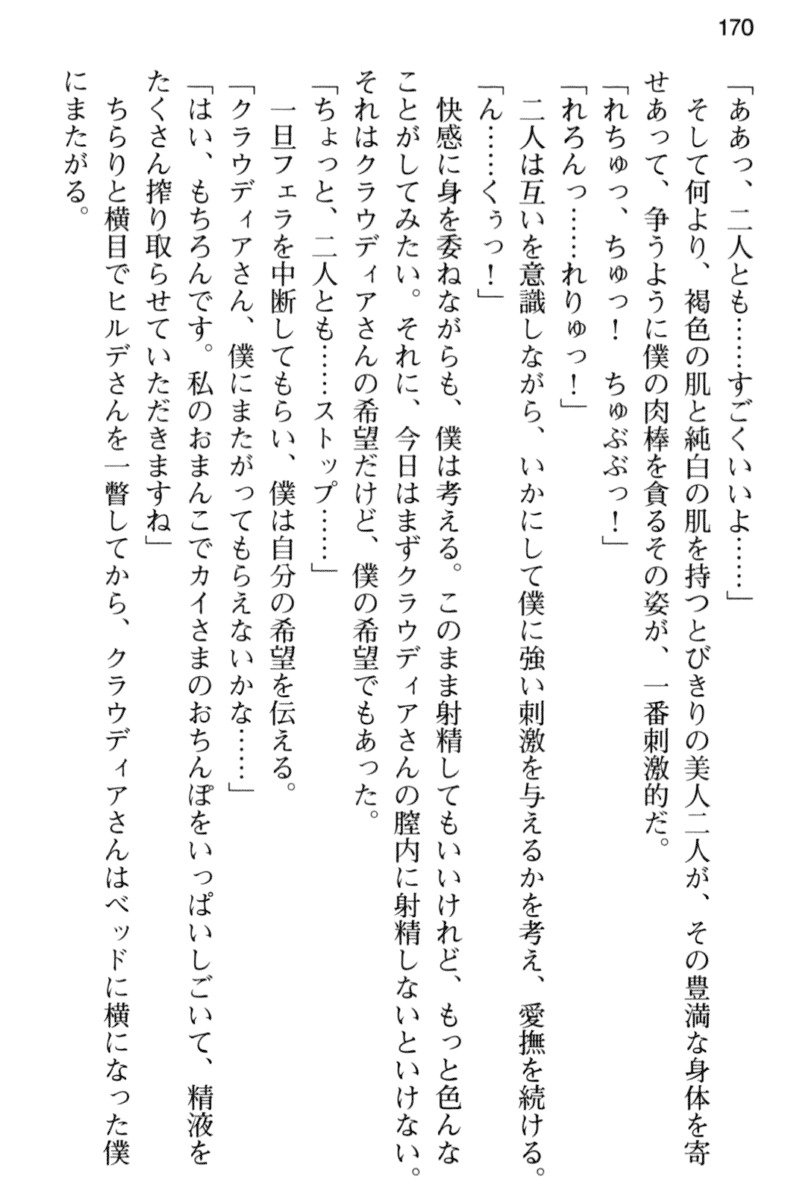 170
「ああっ、二人とも……すごくいいよ……」
そして何より、褐色の肌と純白の肌を持つとびきりの美人二人が、その豊満な身体を寄
せあって、争うように僕の肉棒を貪るその姿が、一番刺激的だ。
「れちゅっ、ちゅっ！　ちゅぶぶっ！」
「れろんっ……れりゅっ！」
二人は互いを意識しながら、いかにして僕に強い刺激を与えるかを考え、愛撫を続ける。
「ん……くぅっ！」
快感に身を委ねながらも、僕は考える。このまま射精してもいいけれど、もっと色んな
ことがしてみたい。それに、今日はまずクラウディアさんの膣内に射精しないといけない。
それはクラウディアさんの希望だけど、僕の希望でもあった。
「ちょっと、二人とも……ストップ……」
一旦フェラを中断してもらい、僕は自分の希望を伝える。
「クラウディアさん、僕にまたがってもらえないかな……」
「はい、もちろんです。私のおまんこでカイさまのおちんぽをいっぱいしごいて、精液を
たくさん搾り取らせていただきますね」
ちらりと横目でヒルデさんを一瞥してから、クラウディアさんはベッドに横になった僕
にまたがる。